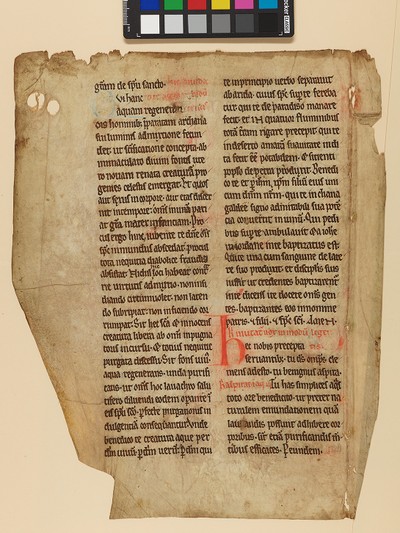 grām de spū sancto.
Qui hanc
aquam regenerandis
hominib; p̄paratam archana
sui luminis admixtione fecun
det. ut sc̄ificatione concepta ab
inmaculato diuini fontis ute
ro nouam renata creaturā pro
genies celestis emergat. Et quos
aut sexus in corpore. aut etas discer
nit in tempore. om̄s in unā pari
at gr̄a mater infantiam. Pro
cul ergo hinc iubente te dn̄e om̄s
sp̄c inmundus abscedat. procul
tota nequitia diabolice fraudis
absistat. Nichil hic loci habeat
uirtutis admixtio. non insi
diando circumuolet. non laten
do subripiat. non inficiendo cor
rumpat. Sit hec sc̄a & innocens
creatura libera ab om̄i inpugna
toris incursu. & totius nequitie
purgata discessu. Sit fons uiuus
aqua regenerans. unda purifi
cans. ut om̄s hoc lauacro salu
tifero diluendi eodem operante in
eis sp̄u sc̄o. p̄fecte purgationis in
dulgentiā consequantur. Unde
benedico te creatura aque per
dm̄ uiuū. p̄ dm̄ uerū. p̄ dm̄ qui
te in principio uerbo separauit
ab arida. cuius sp̄c sup̄ te fereba
tur. qui te de paradiso manare
fecit. et in quatuor fluminibus
totā t̄ram rigare precepit. qui te
in deserto amarā suauitate indi
ta fecit ēē potabilem. & sitienti
populo de petra produxit. Benedi
co te et p̄ ihm̄ xp̄m filiū eius uni
cum dn̄m nr̄m. qui te in chana
galilee signo admirabili sua potē
tia conuertit in uinū. Qui pedi
bus sup̄ te ambulauit. & a iohe
in iordane in te baptizatus est.
Qui te una cum sanguine de late
re suo produxit. et discipulis suis
iussit. ut credentes baptizarent
in te dicens. ite docete om̄s gen
tes. baptizantes eos in nomine
patris. & filii. & sp̄c sc̄i.
Hec nobis precepta
seruantib; tu ds̄ om̄ps cle
mens adesto. tu benignus aspira.
Tu has simplices aq̄s
tuo ore benedicito. ut preter na
turalem emundationem quā
lauandis possunt adhibere cor
poribus. sint etiā purificandis m̄
tibus efficaces. Per eundem.